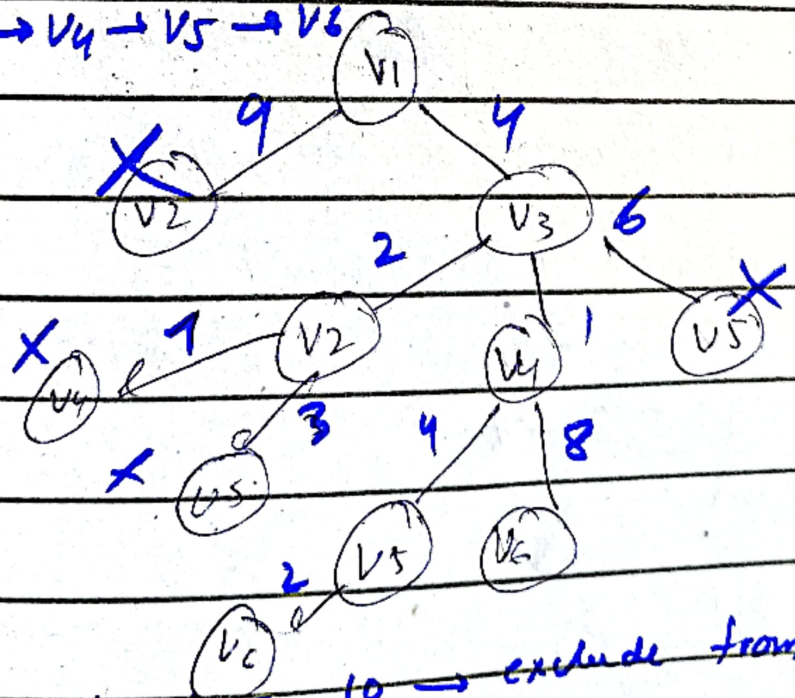 → V4 → V5 → V6
V1
9 4
X
V2 V3 6
2 X
X 1 V2 1 V5
V4 V4
3 4 8
X V5
V5 V6
2
V6
10 → exclude from